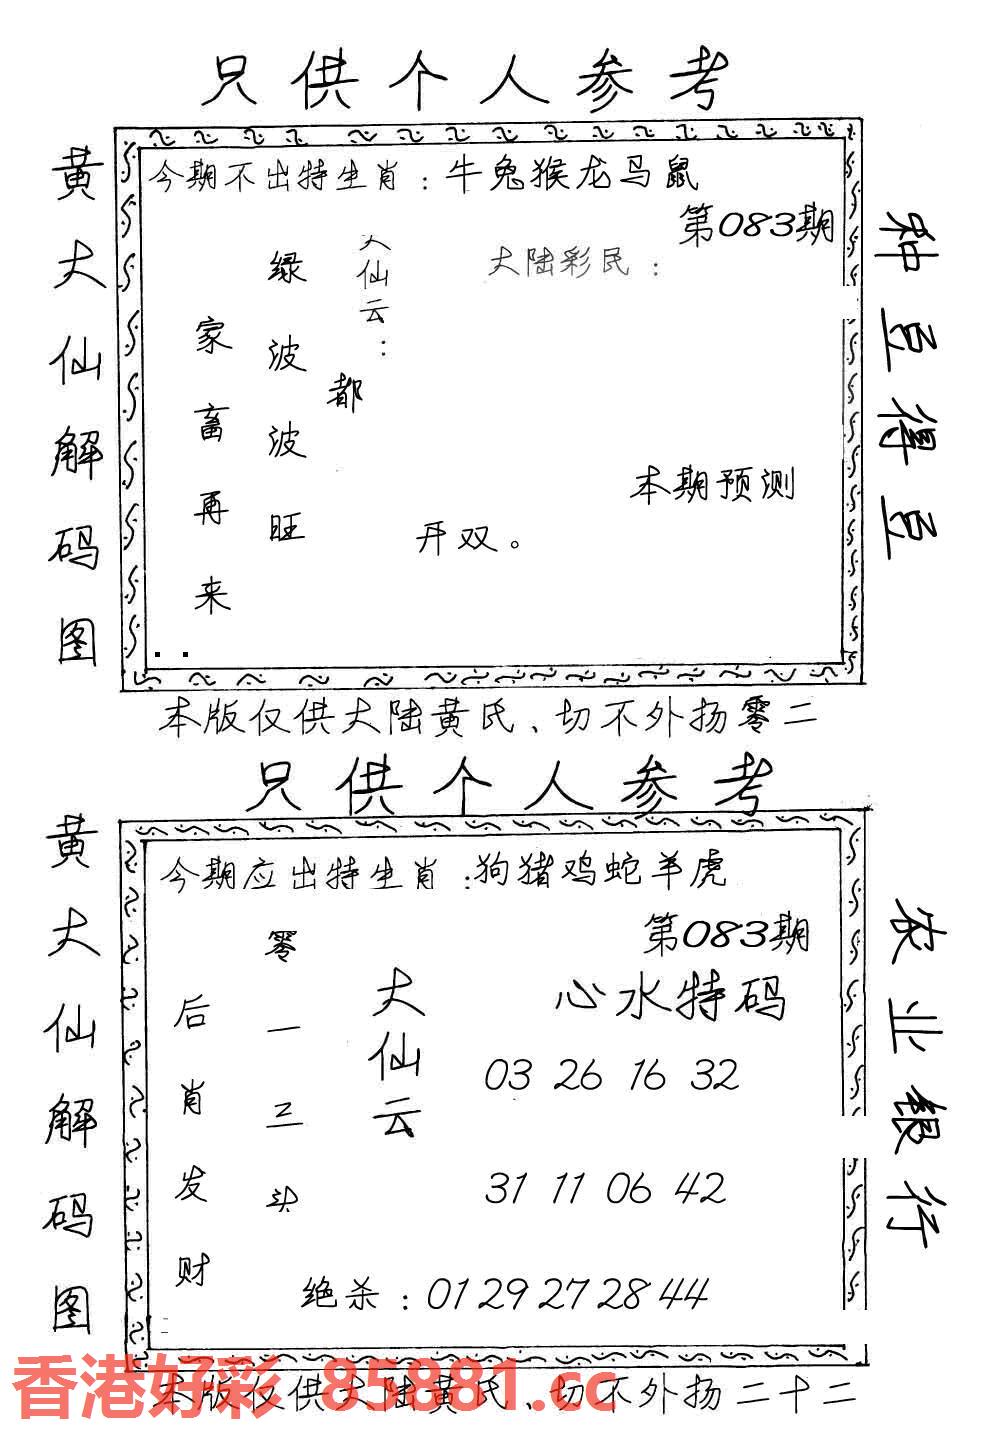 只供个人参考
黄大仙解码图
今期不出特生肖：牛兔猴龙马鼠
第083期
大陆彩民：
大仙云：
都
绿波波旺
家畜再来
本期预测
开双。
种豆得豆
本版仅供大陆黄氏、切不外扬零二
只供个人参考
黄大仙解码图
今期应出特生肖：狗猪鸡蛇羊虎
第083期
心水特码
大仙云
零一三头
后肖发财
03 26 16 32
31 11 06 42
绝杀：01 29 27 28 44
农业银行
香港好彩 85881.cc
本版仅供大陆黄氏、切不外扬二十二